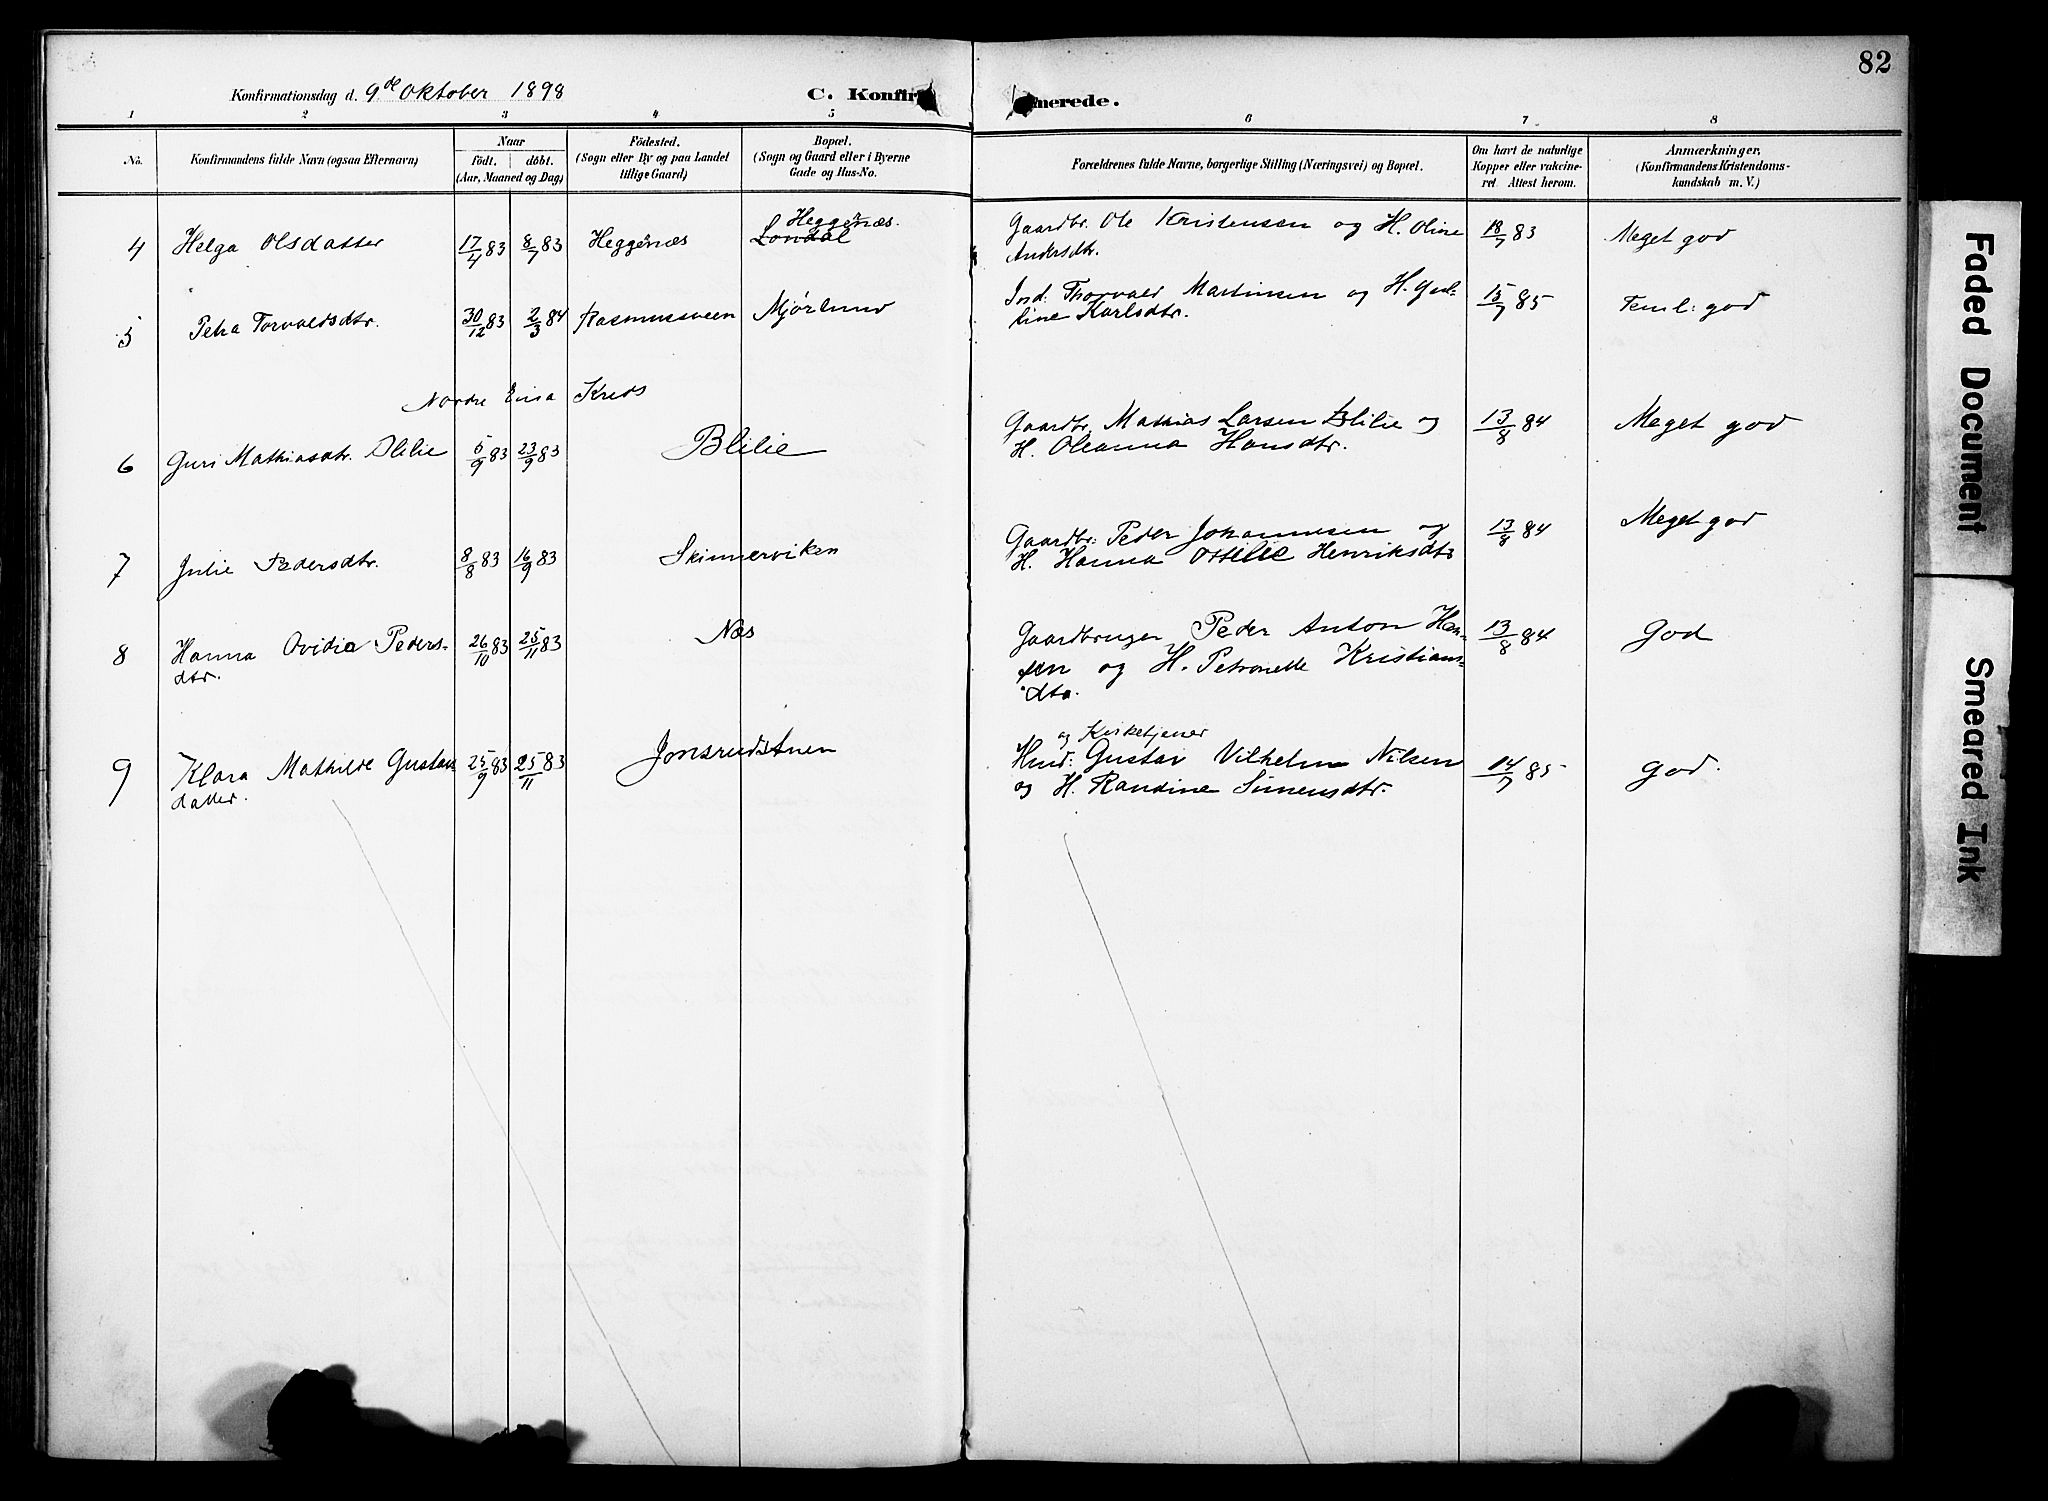 82
Konfirmationsdag d. 9de Oktober 1898
C. Konfir merede.
1 2 3 4 5 6 7 8
No.
Konfirmandens fulde Navn (ogsaa Efternavn)
Naar
födt. döbt.
(Aar, Maaned og Dag)
Födested.
(Sogn eller By og paa Landet
tillige Gaard)
Bopæl.
(Sogn og Gaard eller i Byerne
Gade og Hus-No.
Forældrenes fulde Navne, borgerlige Stilling (Næringsvei) og Bopæl.
Om havt de naturlige
Kopper eller vakcine-
ret. Attest herom.
Anmærkninger,
(Konfirmandens Kristendoms-
kundskab m. V.)
4 Helga Olsdatter 17/4 83 8/7 83 Heggenæs Heggenæs. Gaardbr. Ole Kristensen og H. Oline 18/7 83 Meget god
Andersdtr.
5 Petra Torvaldsdtr. 30/12 83 2/3 84 Rasmusveen Mjørlund Ind: Thorvald Martinsen og H. 15/7 85 Teml: god
Karlsdtr.
Nordre Kreds
6 Guri Mathiasdtr. Blilie 5/9 83 23/9 83 Blilie Gaardbr. Mathias Larsen Blilie og 13/8 84 Meget god
H. Oleanna Hansdtr.
7 Julie Pedersdtr. 8/8 83 16/9 83 Skinnerviken Gaardbr: Peder Johannesen og 13/8 84 Meget god
H. Hanna Ottilie Henriksdtr
8 Hanna Ovidia Peders- 26/10 83 25/11 83 Næs Gaardbruger Peder Anton Han- 13/8 84 God
dtr. sen og H. Petronelle Kristians-
dtr.
og Kirketjener
9 Klara Mathilde Gustav- 25/9 83 25/11 83 Jonsrudstuen Hmd: Gustav Vilhelm Nilsen 14/7 85 God.
datter. og H. Randine Simensdtr.
Faded Document
Smeared Ink